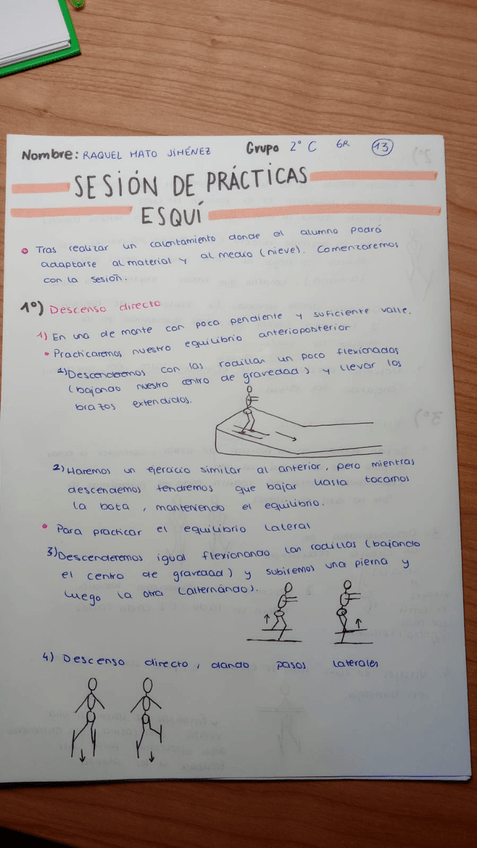 Nombre: RAQUEL MATO JIMÉNEZ Grupo 2° C GR 13
SESIÓN DE PRÁCTICAS
ESQUÍ
Tras realizar un calentamiento donde el alumno podrá
adaptarse al material y al medio (nieve). Comenzaremos
con la sesión.
1º) Descenso directo
1) En una de monte con poca pendiente y suficiente valle.
Practicaremos nuestro equilibrio anteroposterior
Descenderemos con las rodillas un poco flexionadas
(bajando nuestro centro de gravedad) y llevar los
brazos extendidos.
2) Haremos un ejercicio similar al anterior, pero mientras
descendemos tendremos que bajar hasta tocarnos
la bota, manteniendo el equilibrio.
Para practicar el equilibrio lateral
3) Descenderemos igual flexionando las rodillas (bajando
el centro de gravedad) y subiremos una pierna y
luego la otra (alternando).
4) Descenso directo, dando pasos laterales